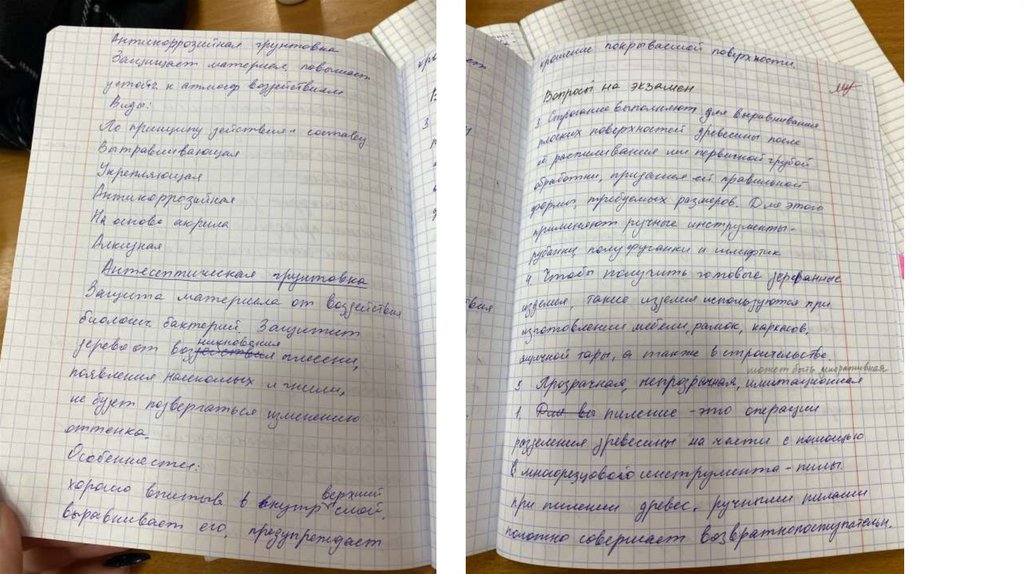 Антикоррозийная грунтовка
Защищает материал, повышает
устойч. к атмосф воздействиям
Виды:
По принципу действия и составу
Вытравливающая
Укрепляющая
Антикоррозийная
На основе акрила
Алкидная
Антисептическая грунтовка
Защита материала от воздействия
биологич. бактерий. Защитит
никновения
дерево от воз плесени,
появления насекомых и гнили,
не будет подвергаться изменению
оттенка.
Особенности:
верхний
хорошо впитыв в внутр слой.
выравнивает его, предупреждает
крошение покрываемой поверхности.
Вопросы на экзамен
3. Строгание выполняют для выравнивания
плоских поверхностей древесины после
её распиливания или первичной грубой
обработки, придания ей правильной
формы, требуемых размеров. Для этого
применяют ручные инструменты-
рубанки, полуфуганки и шлифтик
4. Чтобы получить готовые деревянные
изделия, такие изделия используются при
изготовлении мебели, рамок, каркасов,
ящичной тары, а также в строительстве.
может быть декоративная
5 Прозрачная, непрозрачная, имитационная
1. пиление - это операции
разделения древесины на части с помощью
в многорезцового инструмента - пилы.
при пилении древес. ручными пилами
полотно совершает возвратнопоступательн.